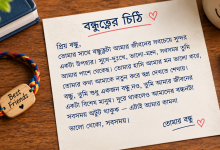 বন্ধুত্বের চিঠি
প্রিয় বন্ধু,
তোমার সাথে বন্ধুত্বটা আমার জীবনের সবচেয়ে সুন্দর
একটা উপহার। সুখে-দুঃখে, ভালো-মন্দে, সবসময় তুমি
আমার পাশে থেকেছ। তোমার হাসি আমার মন ভালো করে,
তোমার কথা আমাকে নতুন করে স্বপ্ন দেখতে শেখায়।
বন্ধু, তুমি শুধু একজন বন্ধু নও, তুমি আমার জীবনের
একটা বিশেষ মানুষ। দূরে থাকলেও আমাদের বন্ধনটা
সবসময় অটুট থাকুক — এটাই আমার কামনা
ভালো থেকো, সবসময়।
তোমার বন্ধু
Best
Friends